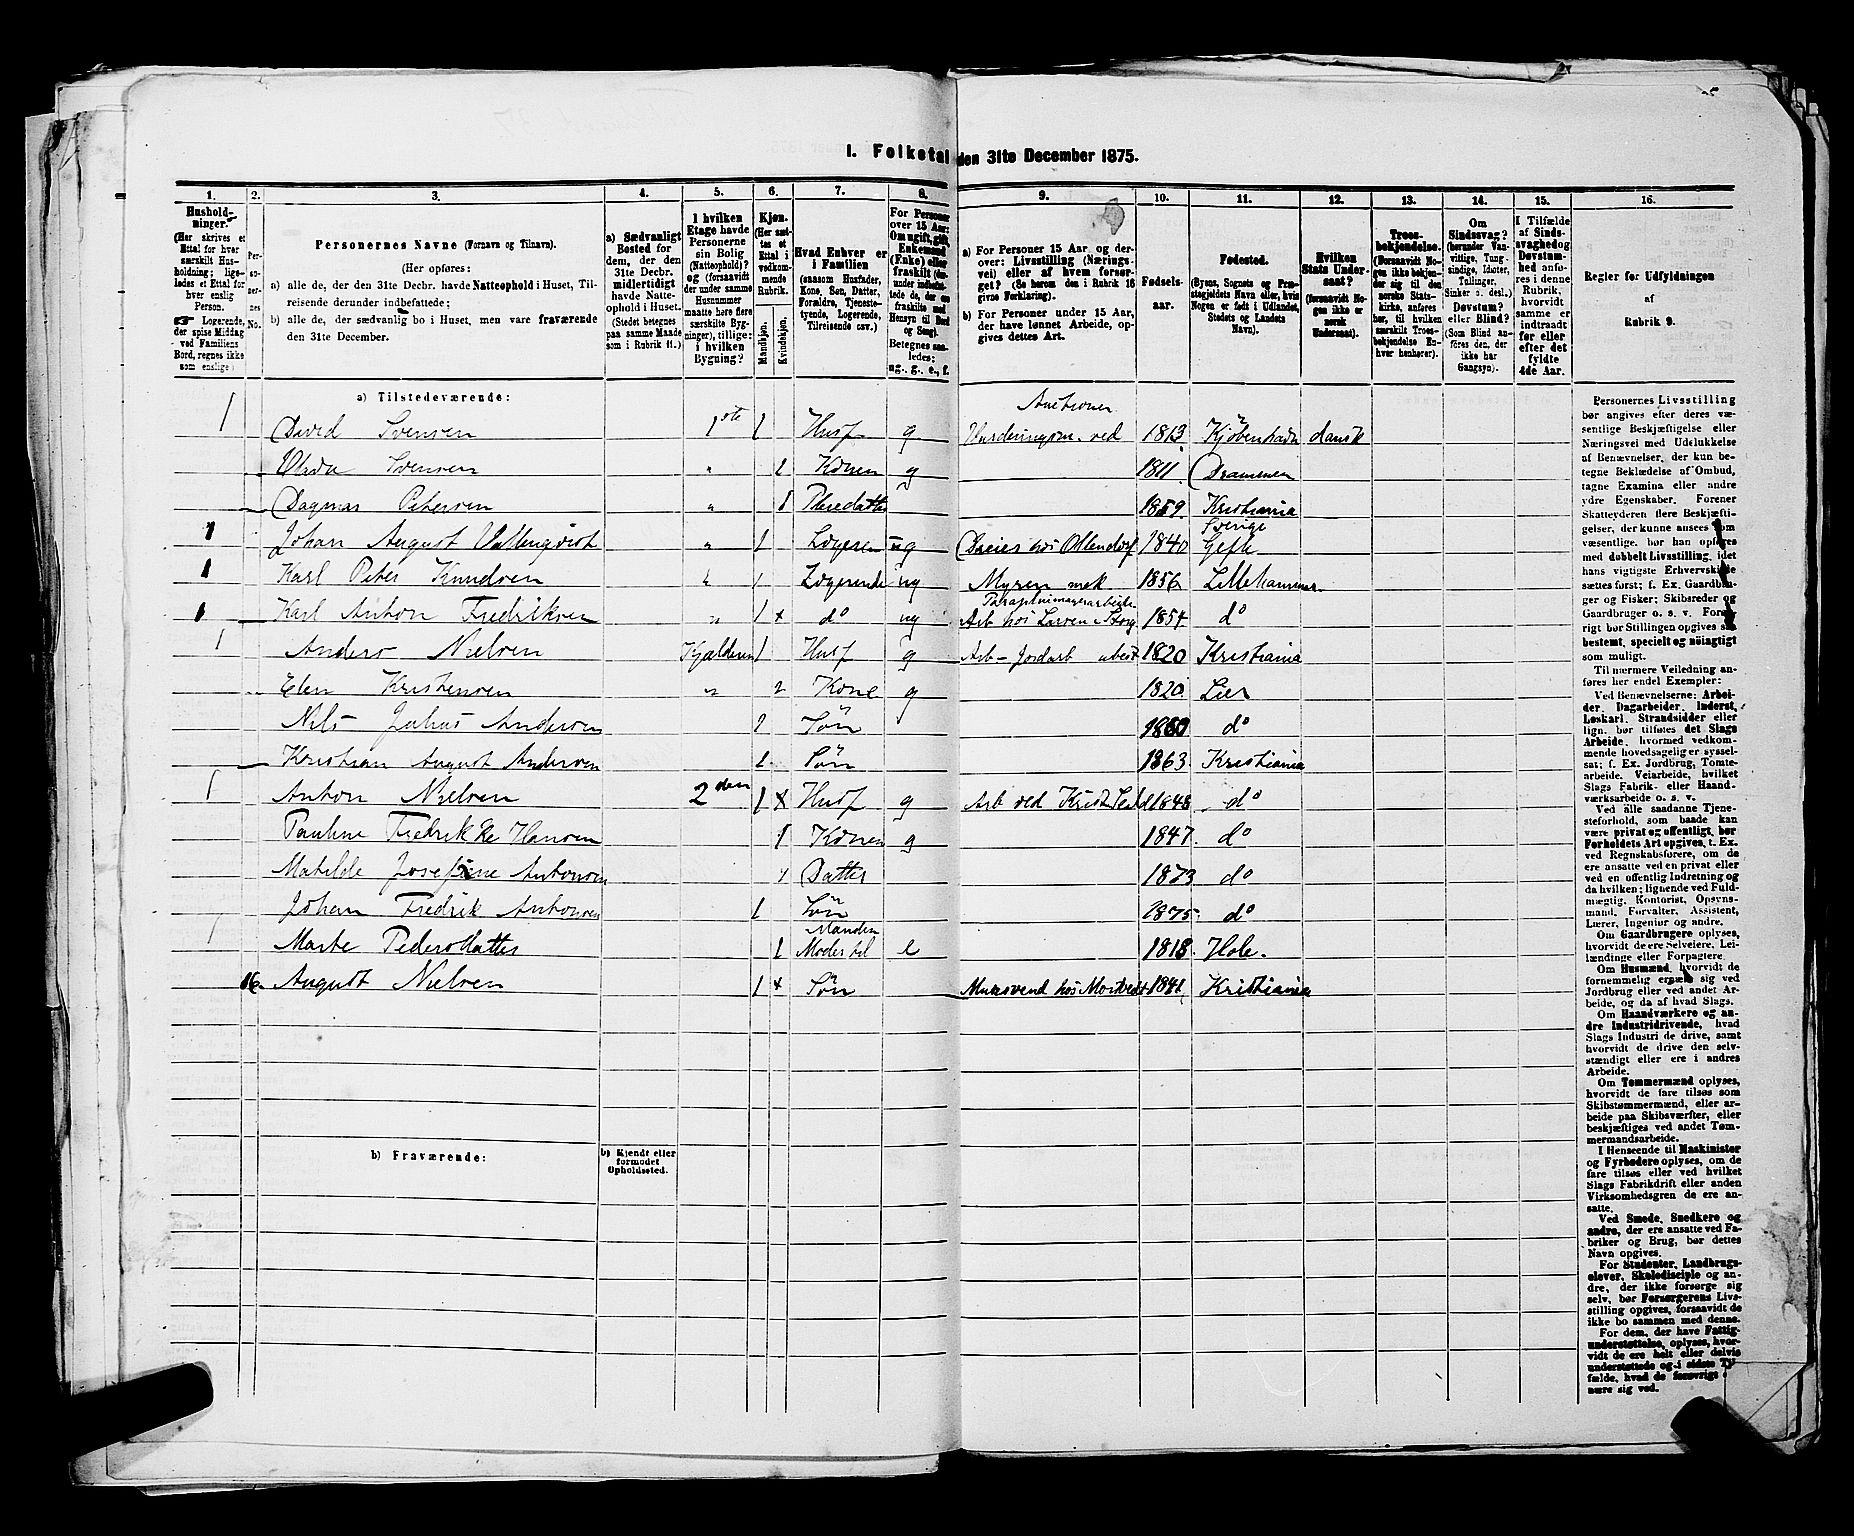 I. Folketal den 31te December 1875.
1. 2. 3. 4. 5. 6. 7. 8. 9. 10. 11. 12. 13. 14. 15. 16.
Hushold-
ninger.
(Her skrives et
Ettal for hver
særskilt Hus-
holdning; lige-
ledes et Ettal for
hver enslig
Person.
☛ Logerende,
der spise Middag
ved Familiens
Bord, regnes ikke
som enslige)
Per-
so-
ner-
nes
No.
Personernes Navne (Fornavn og Tilnavn).
(Her opføres:
a) alle de, der den 31te Decbr. havde Natteophold i Huset, Til-
reisende derunder indbefattede;
b) alle de, der sædvanlig bo i Huset, men vare fraværende
den 31te December.
a) Sædvanligt
Bosted for
dem, der den
31te Decbr.
midlertidigt
havde Natte-
ophold i Huset.
(Stedet betegnes
paa samme Maade
som i Rubrik 11.)
I hvilken
Etage havde
Personerne
sin Bolig
(Natteophold)?
og (forsaavidt
der under samme
Husnummer
maatte høre flere
særskilte Byg-
ninger), tillige:
i hvilken
Bygning?
Kjøn.
(Her sæt-
tes et
Ettal i
vedkom-
mende
Rubrik.
Mandkjøn.
Kvindekjøn.
Hvad Enhver er
i Familien
(saasom Husfader,
Kone, Søn, Datter,
Forældre, Tjeneste-
tyende, Logerende,
Tilreisende osv.)
For Personer
over 15 Aar:
Om ugift, gift,
Enkemand
(Enke) eller
fraskilt
Hensyn til Bord
og Seng)
Betegnes saa-
ledes:
ug., g., e., f.
a) For Personer 15 Aar og der-
over: Livsstilling (Nærings-
vei) eller af hvem forsør-
get? (Se herom den i Rubrik 16
givne Forklaring).
b) For Personer under 15 Aar,
der have lønnet Arbeide, op-
gives dettes Art.
Fødsels-
aar.
Fødested.
(Byens, Sognets og Præ-
stegjeldets Navn eller, hvis
Nogen er født i Udlandet,
Stedets og Landets
Navn).
Hvilken
Stats Under-
saat?
(forsaavidt No-
gen ikke er
norsk
Undersaat).
Troes-
bekjendelse.
(Forsaavidt No-
gen ikke bekjen-
der sig til den
norske Stats-
kirke, anføres
her, til hvilken
særskilt Troes-
bekjendelse En-
hver henhører).
Om
Sindssvag?
(herunder Van-
vittige, Tung-
sindige, Idioter,
Tullinger,
Sinker o. desl.)
Døvstum?
eller Blind?
(Som Blind an-
føres den, der
ikke har
Gangsyn).
I Tilfælde
af Sinds-
svaghed og
Døvstum-
hed anfø-
res i denne
Rubrik,
hvorvidt
samme er
indtraadt
før eller
efter det
fyldte
4de Aar.
Regler for Udfyldningen
af
Rubrik 9.
a) Tilstedeværende:
Auctioner
1 David Svensen 1ste 1 Husf g Vurderingsm. ved 1813 Kjøbenhavn dansk
Svensen " 1 Konen g 1811 Drammen
Dagmar Petersen " 1 Pleiedatter 1859. Kristiania
Sverige
1 Johan August " 1 Logeren ug Dreier hos Ollendorf 1840 Gefle
1 Karl Peter Knudsen " 1 Logerende ug Myren mek 1856 Lillehammer
Parapluimagerarbeider
1 Karl Anton Fredriksen " 1 x do ug Arb hos Larsen Storg 1854 do
1 Anders Nielsen Kjælderen 1 Husf g Arb - Jordarb ubest 1820 Kristiania
Elen Kristensen " 1 Kone g 1820. Lier
Nils Julius Andersen 1 Søn 1860 do
Kristian August Andersen 1 Søn 1863. Kristiania
1 Anton Nielsen 2den 1 x Husf g Arb ved Krist 1848 do
Pauline Fredrikke Hansen 1 Konen g 1847. do
Matilde Josefine Antonsen 1 Datter 1873 do
Johan Fredrik Antonsen 1 Søn 1875. do
Manden
1 Marte Pedersdatter 1 Moder til e 1818. Hole.
16 August Nielsen 1 x Søn Mursvend hos 1841 Kristiania
b) Fraværende:
b) Kjendt eller
formodet
Opholdssted.
Personernes Livsstilling
bør angives efter deres væ-
sentlige Beskjæftigelse eller
Næringsvei med Udelukkelse
af Benævnelser, der kun be-
tegne Beklædelse af Ombud,
tagne Examina eller andre
ydre Egenskaber. Forener
Skatteyderen flere Beskjæfti-
gelser, der kunne ansees som
væsentlige, bør han opføres
med dobbelt Livsstilling, idet
hans vigtigste Erhvervskilde
sættes først; f. Ex. Gaardbru-
ger og Fisker; Skibsreder og
Gaardbruger o. s. v. Forøv-
rigt bør Stillingen opgives saa
bestemt, specielt og nøiagtigt
som muligt.
Til nærmere Veiledning an-
føres her endel Exempler:
Ved Benævnelserne: Arbei-
der, Dagarbeider, Inderst,
Løskarl, Strandsidder eller
lign. bør tilføies det Slags
Arbeide, hvormed vedkom-
mende hovedsagelig er syssel-
sat; f. Ex. Jordbrug, Tomte-
arbeide, Veiarbeide, hvilket
Slags Fabrik- eller Haand-
værksarbeide o. s. v.
Ved alle saadanne Tjene-
steforhold, som baade kan
være privat og offentlig, bør
Forholdets Art opgives, t. Ex.
ved Regnskabsførere, om de
ere ansatte ved en privat eller
ved en offentlig Indretning og
da hvilken; lignende ved Fuld-
mægtig, Kontorist, Opsyns-
mand, Forvalter, Assistent,
Lærer, Ingeniør og andre.
Om Gaardbrugere oplyses,
hvorvidt de ere Selveiere, Lei-
lændinge eller Forpagtere.
Om Husmænd, hvorvidt de
fornemmelig ernære sig ved
Jordbrug eller ved andet Ar-
beide, og da af hvad Slags.
Om Haandværkere og an-
dre Industridrivende, hvad
Slags Industri de drive, samt
hvorvidt de drive den selv-
stændigt eller ere i andres
Arbeide.
Om Tømmermænd oplyses,
hvorvidt de fare tilsøs som
Skibstømmermænd, eller ar-
beide paa Skibsværfter, eller
beskjæftiges ved andet Tøm-
mermandsarbeide.
I Henseende til Maskinister
og Fyrbødere oplyses, om de
fare tilsøs eller ved hvilket
Slags Fabrikdrift eller anden
Virksomhedsgren de ere an-
satte.
Ved Smede, Snedkere og
andre, der ere ansatte ved Fa-
briker og Brug, bør dettes
Navn opgives.
For Studenter, Landbrugs-
elever, Skoledisciple og an-
dre, der ikke forsørge sig
selv, bør Forsørgerens Livs-
stilling opgives, forsaavidt de
ikke bo sammen med denne.
For dem, der have Fattig-
understøttelse, oplyses, hvor-
vidt de ere helt eller delvis
understøttede og i sidste Til-
fælde, hvad de forøvrigt
nære sig ved.